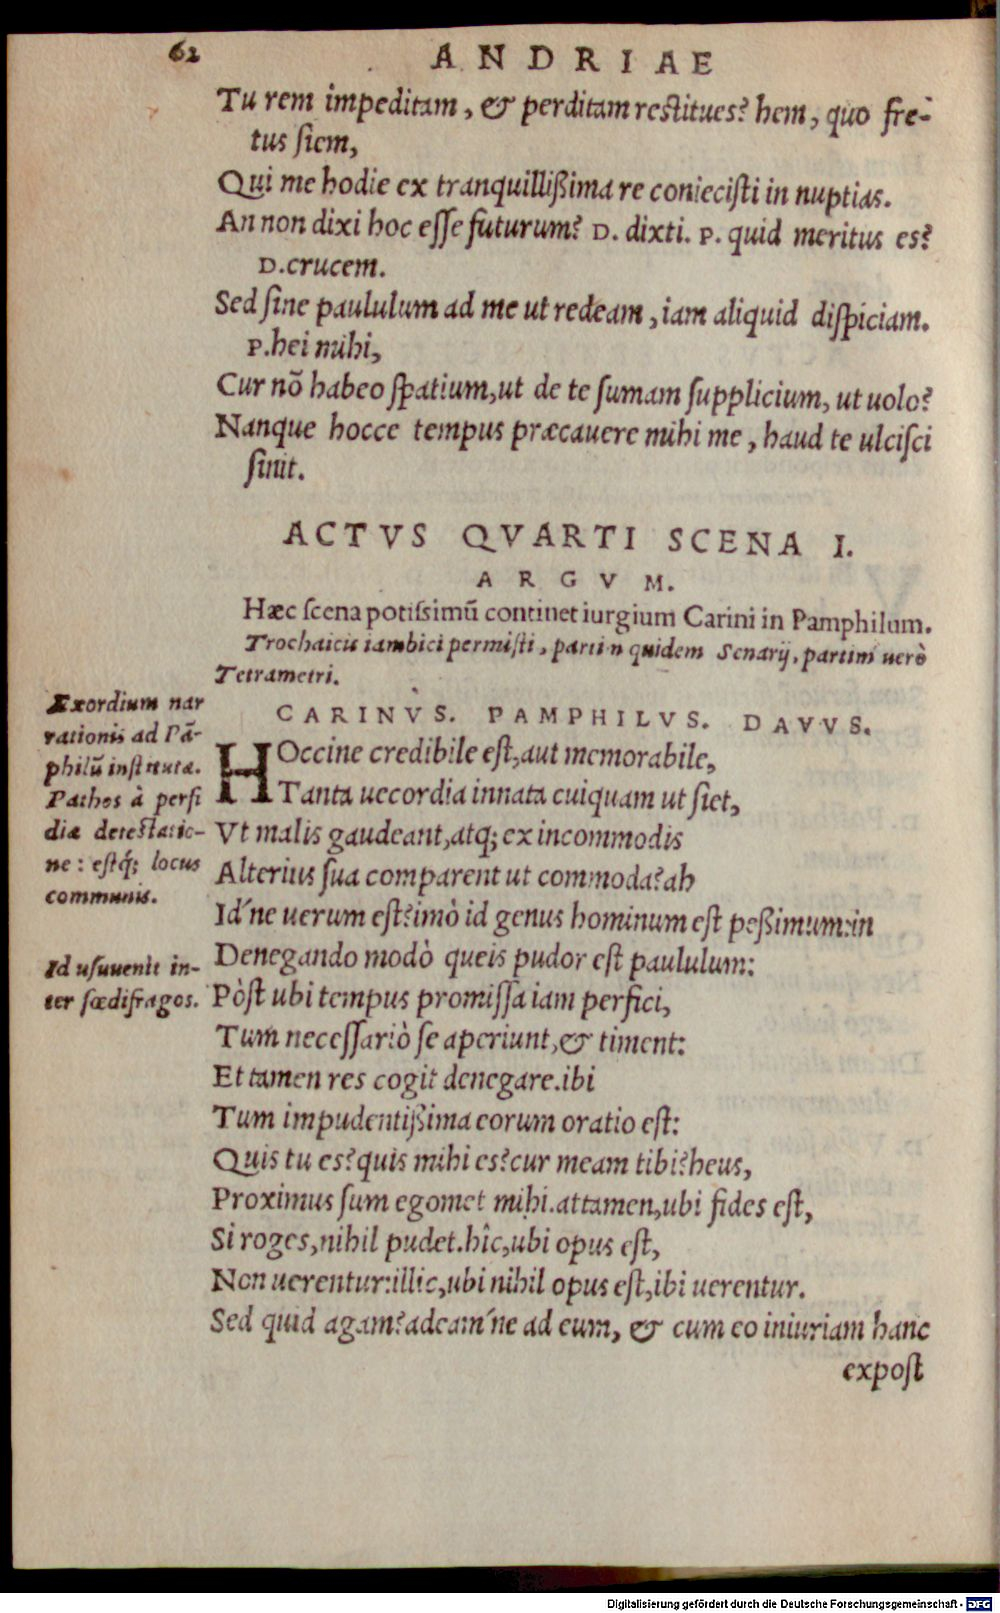 62
ANDRIAE
Tu rem impeditam, & perditam restitues? hem, quo fre-
tus siem,
Qui me hodie ex tranquillißima re coniecisti in nuptias.
An non dixi hoc esse futurum? D. dixti. P. quid meritus es?
D. crucem.
Sed sine paululum ad me ut redeam, iam aliquid dispiciam.
P. hei mihi,
Cur nõ habeo spatium, ut de te sumam supplicium, ut uolo?
Nanque hocce tempus præcauere mihi me, haud te ulcisci
sinit.
ACTVS QVARTI SCENA I.
ARGVM.
Hæc scena potissimũ continet iurgium Carini in Pamphilum.
Trochaicis iambici permisti, partim quidem Senarij, partim uerò
Tetrametri.
CARINVS. PAMPHILVS. DAVVS.
Exordium nar
rationis ad Pã-
philũ institutæ.
Pathos à perfi
diæ detestatio-
ne: estq; locus
communis.
Id usuuenit in-
ter fœdifragos.
HOccine credibile est, aut memorabile,
Tanta uecordia innata cuiquam ut siet,
Vt malis gaudeant, atq; ex incommodis
Alterius sua comparent ut commoda? ah
Id'ne uerum est? imò id genus hominum est peßimum: in
Denegando modò queis pudor est paululum:
Pòst ubi tempus promissa iam perfici,
Tum necessariò se aperiunt, & timent:
Et tamen res cogit denegare. ibi
Tum impudentißima eorum oratio est:
Quis tu es? quis mihi es? cur meam tibi? heus,
Proximus sum egomet mihi. attamen, ubi fides est,
Si roges, nihil pudet. hîc, ubi opus est,
Non uerentur: illic, ubi nihil opus est, ibi uerentur.
Sed quid agam? adeam'ne ad eum, & cum eo iniuriam hanc
expost
Digitalisierung gefördert durch die Deutsche Forschungsgemeinschaft - DFG